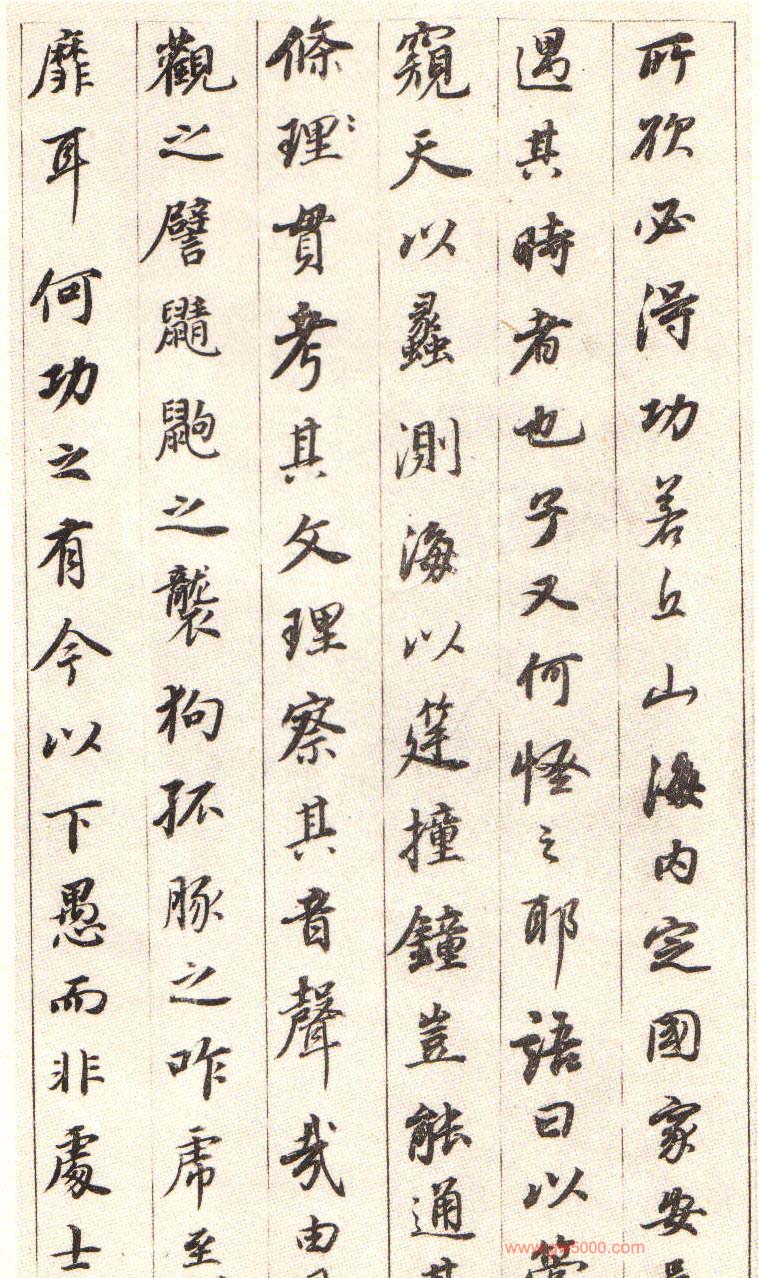 所欲必得功若丘山海内定國家安
遇其時者也子又何怪之耶語曰以管
窺天以蠡測海以筳撞鐘豈能通其
條理貫考其文理察其音聲哉由
觀之譬鼱鼩之襲狗孤豚之咋虎至
靡耳何功之有今以下愚而非處士